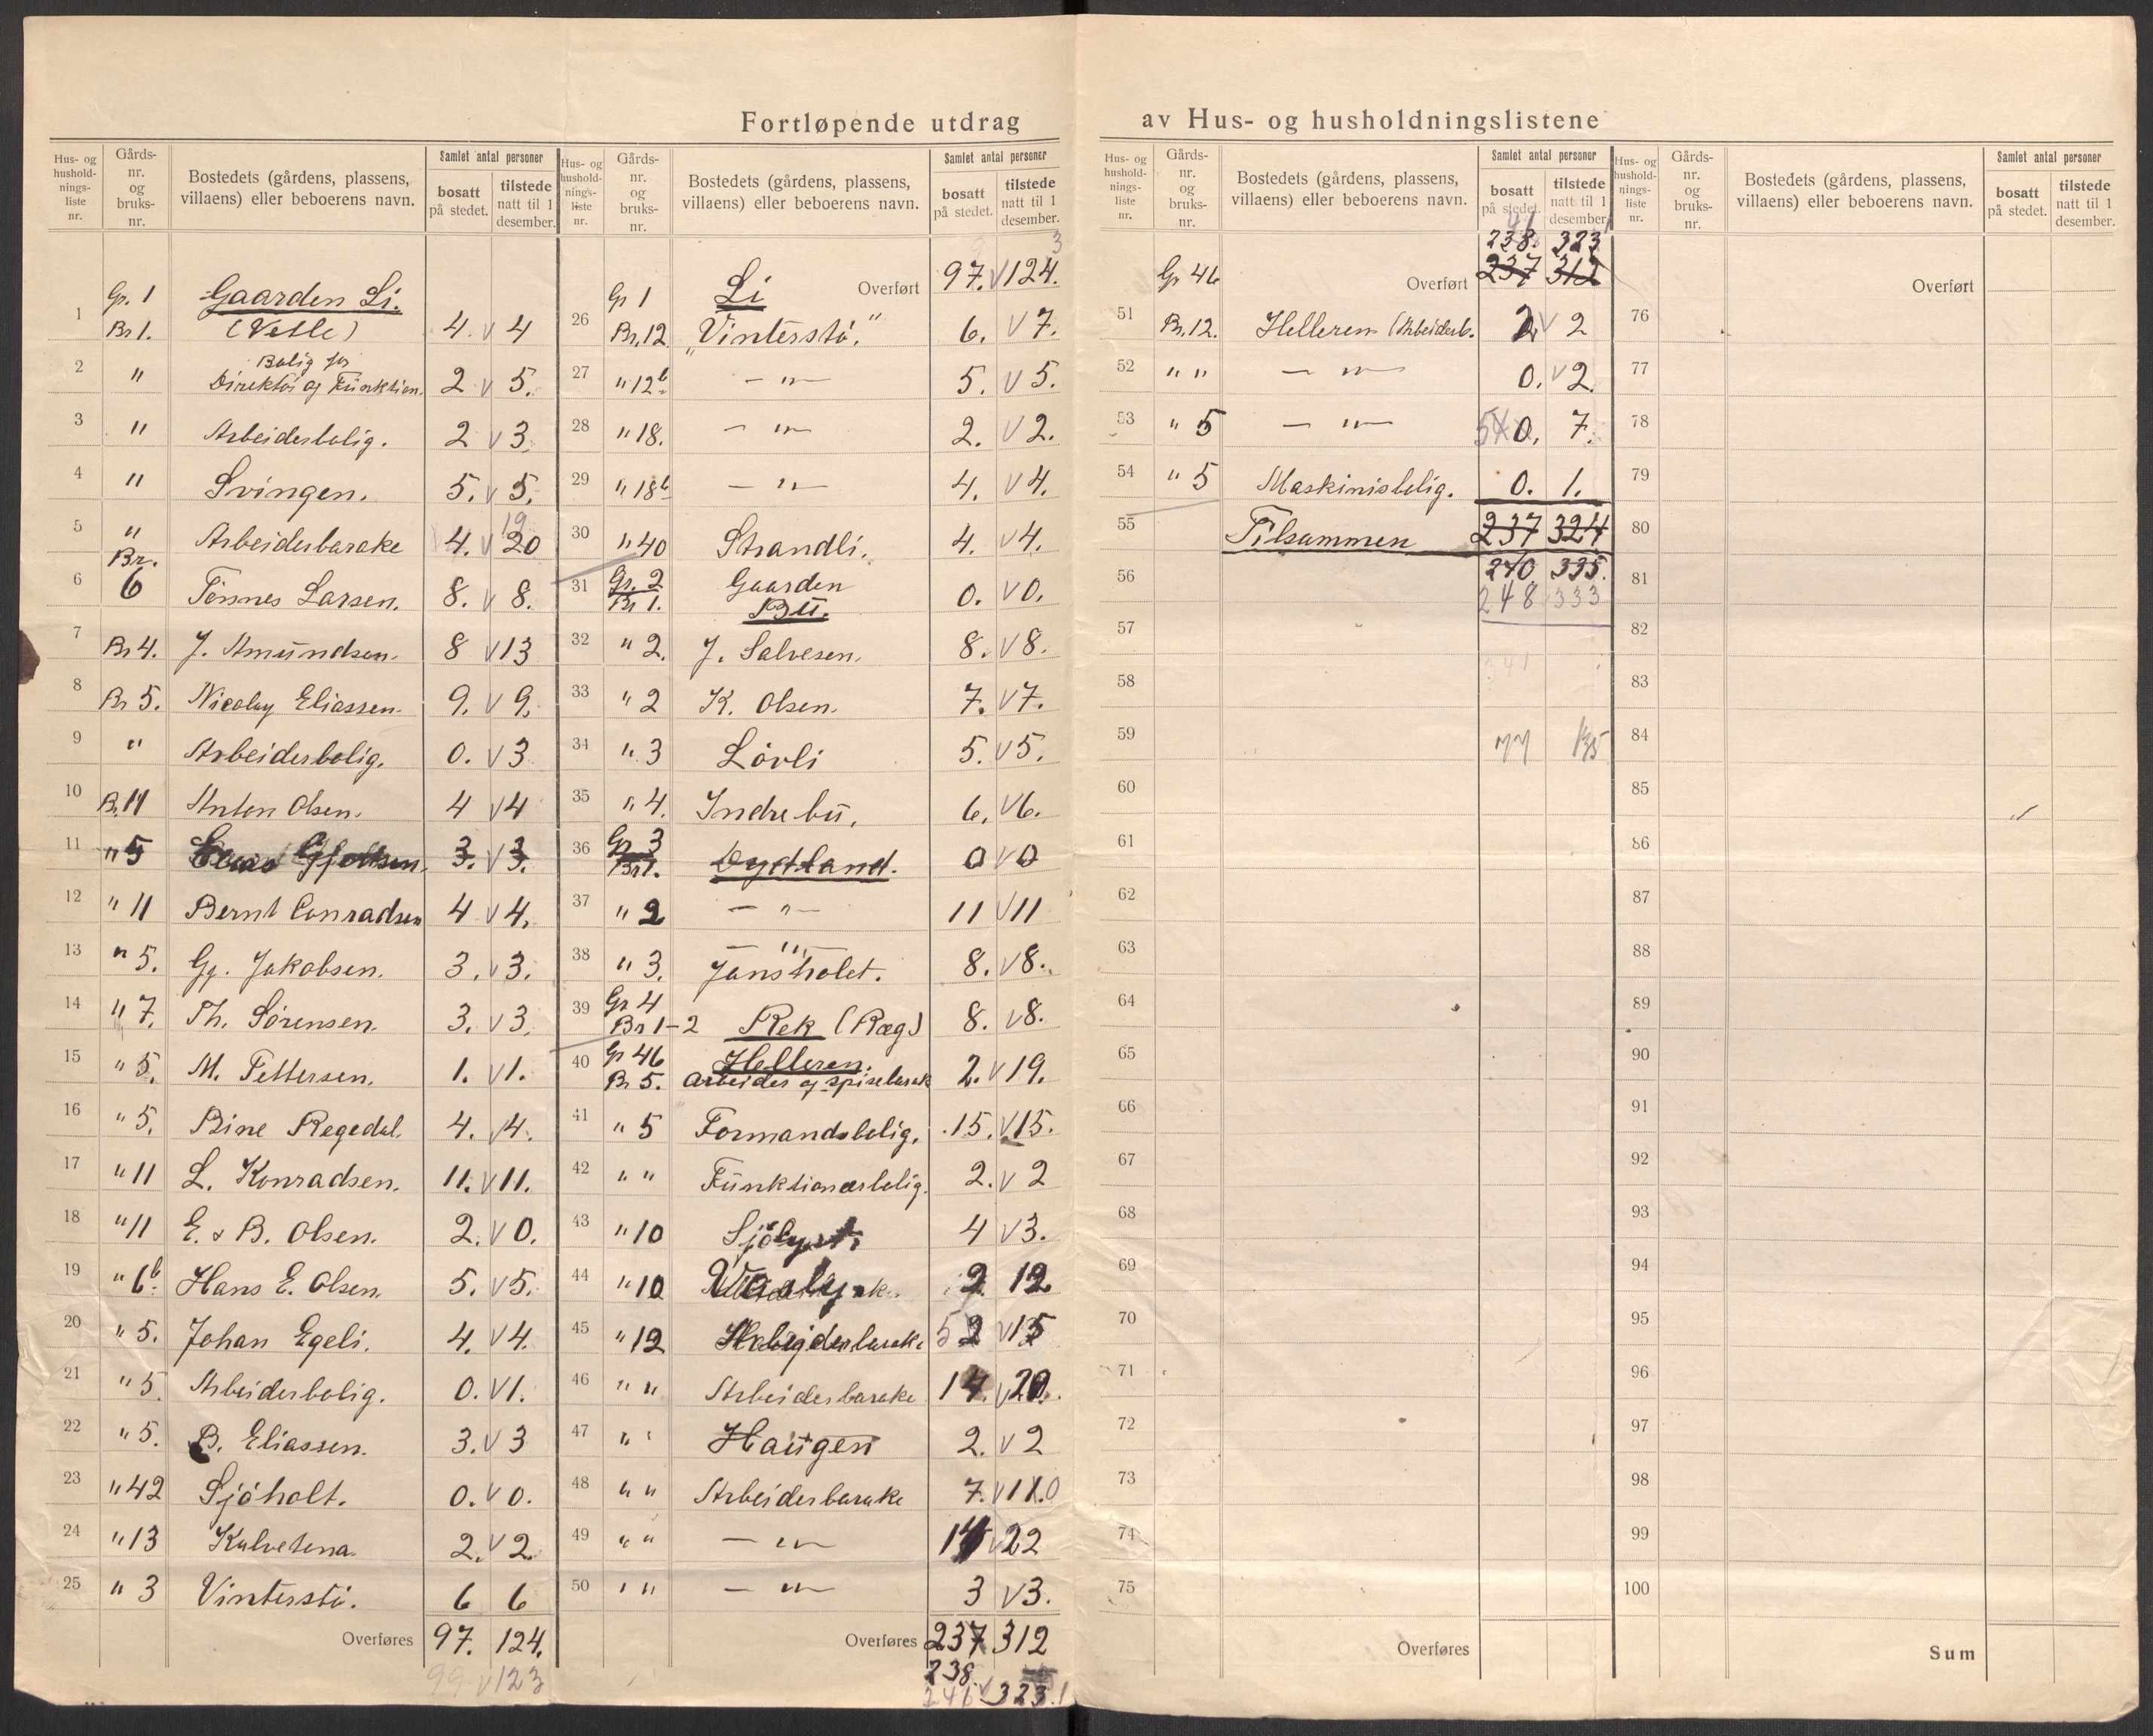 Fortløpende utdrag av Hus- og husholdningslistene
Hus- og hushold-nings-liste nr. | Gårds-nr. og bruks-nr. | Bostedets (gårdens, plassens, villaens) eller beboerens navn. | Samlet antal personer | bosatt på stedet. | tilstede natt til 1 desember.
1 Gr. 1 Br 1. Gaarden Li. (Vetle) 4. v 4
2 " Bolig for Direktör og Funktion. 2 v 5.
3 " Arbeiderbolig. 2 v 3.
4 " Svingen. 5. v 5.
5 " Arbeiderbarake 4. v 20 19
6 Br. 6 Tönnes Larsen. 8. v 8.
7 Br 4. J. Amundsen. 8 v 13
8 Br 5. Nicolay Eliassen. 9. v 9.
9 " Arbeiderbolig. 0. v 3
10 Br. 11 Anton Olsen. 4 v 4
11 " 5 3. v 3.
12 " 11 Bernt Conradsen 4 v 4.
13 " 5. Gg. Jakobsen. 3. v 3.
14 " 7. Th. Sörensen. 3. v 3.
15 " 5. M. Pettersen. 1. v 1.
16 " 5. Bine Regedal. 4. v 4.
17 " 11 L. Konradsen. 11. v 11.
18 " 11 E. & B. Olsen. 2. v 0.
19 " 6b Hans E. Olsen. 5. v 5.
20 " 5. Johan Egeli. 4. v 4.
21 " 5 Arbeiderbolig. 0. v 1.
22 " 5. B. Eliassen. 3. v 3
23 " 42 Sjöholt. 0. v 0.
24 " 13 Kalvetona 2. v 2
25 " 3 Vinterstö. 6 6
Overføres 97. 124.
99 v 123
Hus- og hushold-nings-liste nr. | Gårds-nr. og bruks-nr. | Bostedets (gårdens, plassens, villaens) eller beboerens navn. | Samlet antal personer | bosatt på stedet. | tilstede natt til 1 desember.
Gr 1 Li Overført 97. v 124. 3
26 Br. 12 "Vinterstö." 6. v 7.
27 " 12b — " — 5. v 5.
28 " 18. — " — 2. v 2.
29 " 18b — " — 4. v 4.
30 " 40 Strandli. 4. v 4.
31 Gr. 2 Br 1. Gaarden Bü. 0. v 0.
32 " 2. J. Salvesen. 8. v 8.
33 " 2 K. Olsen. 7. v 7.
34 " 3 Lövli 5. v 5.
35 " 4. Indre bü. 6. v 6.
36 Gr 3 Br 1. Dydland. 0 v 0
37 " 2 — " — 11 v 11
38 " 3. — " — Jansholet. 8. v 8.
39 Gr 4 Br 1-2 Rek (Ræg) 8. v 8.
40 Gr 46 Br 5. Helleren. Arbeider og Spisebarak 2. v 19.
41 " 5 Formandsbolig. 15. v 15.
42 " " Funktionærbolig. 2. v 2
43 " 10 Sjölyst 4 v 3.
44 " 10 2 12
45 " 12 5 2 v 15
46 " " Arbeiderbarake 14. v 20.
47 " " Haugen 2. v 2
48 " " Arbeiderbarake 7. v 11.0
49 " " — " — 14 v 22
50 " " — " — 3 v 3.
Overføres 237 312
238
241 v 323.1
Hus- og hushold-nings-liste nr. | Gårds-nr. og bruks-nr. | Bostedets (gårdens, plassens, villaens) eller beboerens navn. | Samlet antal personer | bosatt på stedet. | tilstede natt til 1 desember.
238. 323
Gr 46 Overført 237 312
51 Br. 12. Helleren (Arbeiderb. 2 v 2
52 " " — " — 0. v 2.
53 " 5 — " — 5 0. 7.
54 " 5 Maskinisbolig. 0. 1.
55 Tilsammen 237 324
56 240 335.
248 333
57
58 241
59 77 135
60
61
62
63
64
65
66
67
68
69
70
71
72
73
74
75
Overføres
Hus- og hushold-nings-liste nr. | Gårds-nr. og bruks-nr. | Bostedets (gårdens, plassens, villaens) eller beboerens navn. | Samlet antal personer | bosatt på stedet. | tilstede natt til 1 desember.
Overført
76
77
78
79
80
81
82
83
84
85
86
87
88
89
90
91
92
93
94
95
96
97
98
99
100
Sum